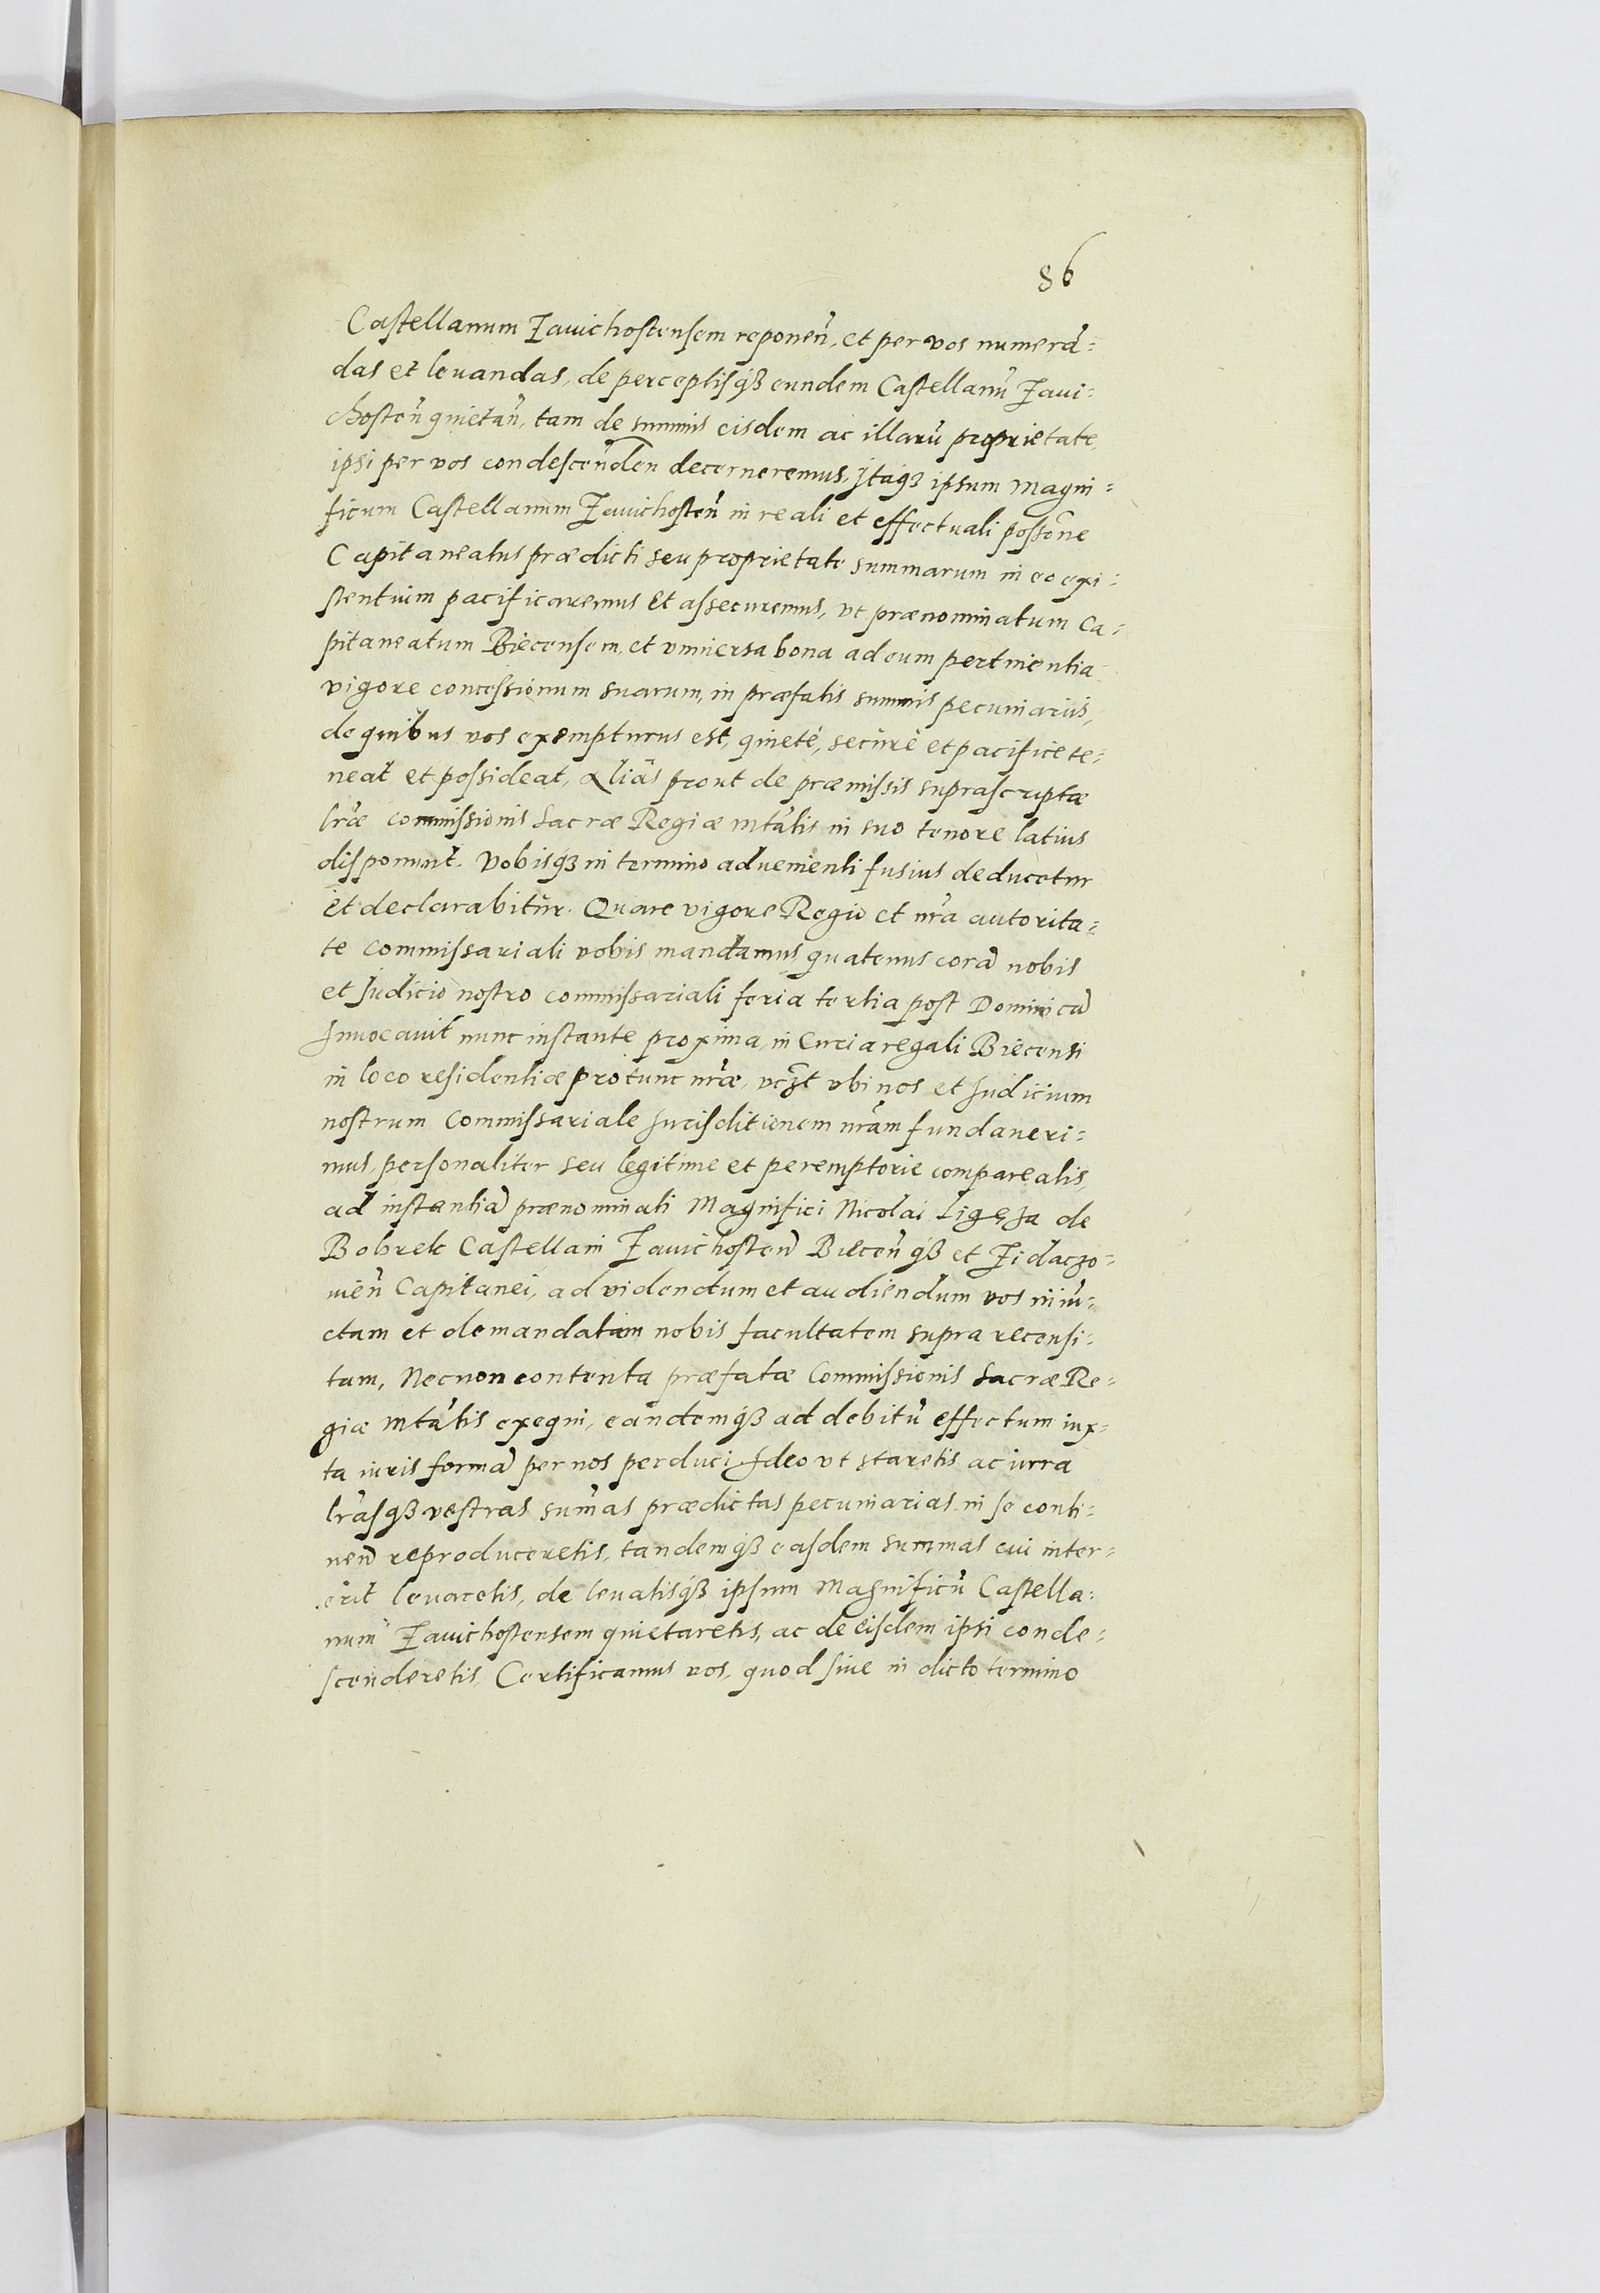 86
Castellanum Zauichostensem reponeñ, et per vos numerã=
das et leuandas, de perceptisqꝫ eundem Castellanũ Zaui=
chosteñ quietañ, tam de summis eisdem ac illarũ proprietate
ipsi per vos condescendeñ decerneremus, Itaqꝫ ipsum Magni=
ficum Castellanum Zauichosteñ in reali et effectuali possõne
Capitaneatus prædicti seu proprietate summarum in eo exi=
stentium pacificaremus et assecuremus, vt prænominatum Ca=
pitaneatum Biecensem, et vniuersa bona ad eum pertinentia
vigore concessionum suarum, in præfatis summis pecuniariis,
de quibus vos exempturus est, quieté, securè et pacificè te=
neat et possideat, Aliàs prout de præmissis suprascriptæ
lr̃æ commissionis Sacræ Regiæ Mtãtis in suo tenore latius
disponunt. Vobisqꝫ in termino aduenienti fusius deducetur
et declarabitur. Quare vigore Regio et nr̃a autorita=
te commissariali vobis mandamus quatenus corã nobis
et Iudicio nostro commissariali feria tertia post Dominicã
Inuocauit nunc instante proxima, in Curia regali Biecensi
in loco residentiæ protunc nr̃æ, vcꝫt vbi nos et Iudicium
nostrum Commissariale Iurisditionem nr̃am fundaueri=
mus, personaliter seu legitime et peremptorie compareatis,
ad instantiã prænominati Magnifici Nicolai Ligęza de
Bobrek Castellani Zauichosteñ Bieceñqꝫ et Zidaczo=
uieñ Capitanei, ad videndum et audiendum vos iniũ=
ctam et demandatam nobis facultatem supra recensi=
tam, Necnon contenta præfatæ Commissionis Sacræ Re=
giæ Mtãtis exequi, eandemqꝫ ad debitũ effectum iux=
ta iuris formã per nos perduci, Ideo vt staretis ac iurra
lr̃asqꝫ vestras sum̃as prædictas pecuniarias in se conti=
neñ reproduceretis, tandemqꝫ easdem summas cui inter=
erit leuaretis, de leuatisqꝫ ipsum Magnificũ Castella=
num Zauichostensem quietaretis, ac de eisdem ipsi conde=
scenderetis, Certificamus vos, quod siue in dicto termino